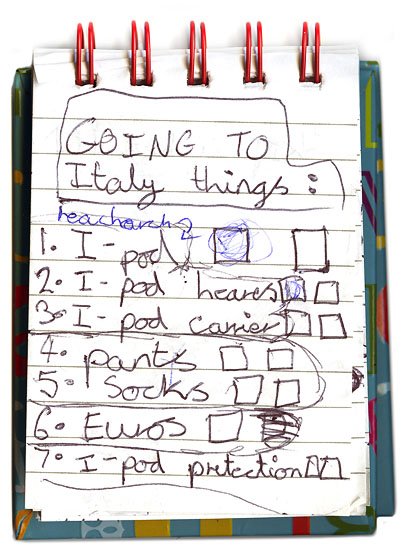 GOING TO
Italy things:
1. I-pod
2. I-pod heares
3. I-pod carrier
4. pants
5. Socks
6. Euros
7. I-pod pretection